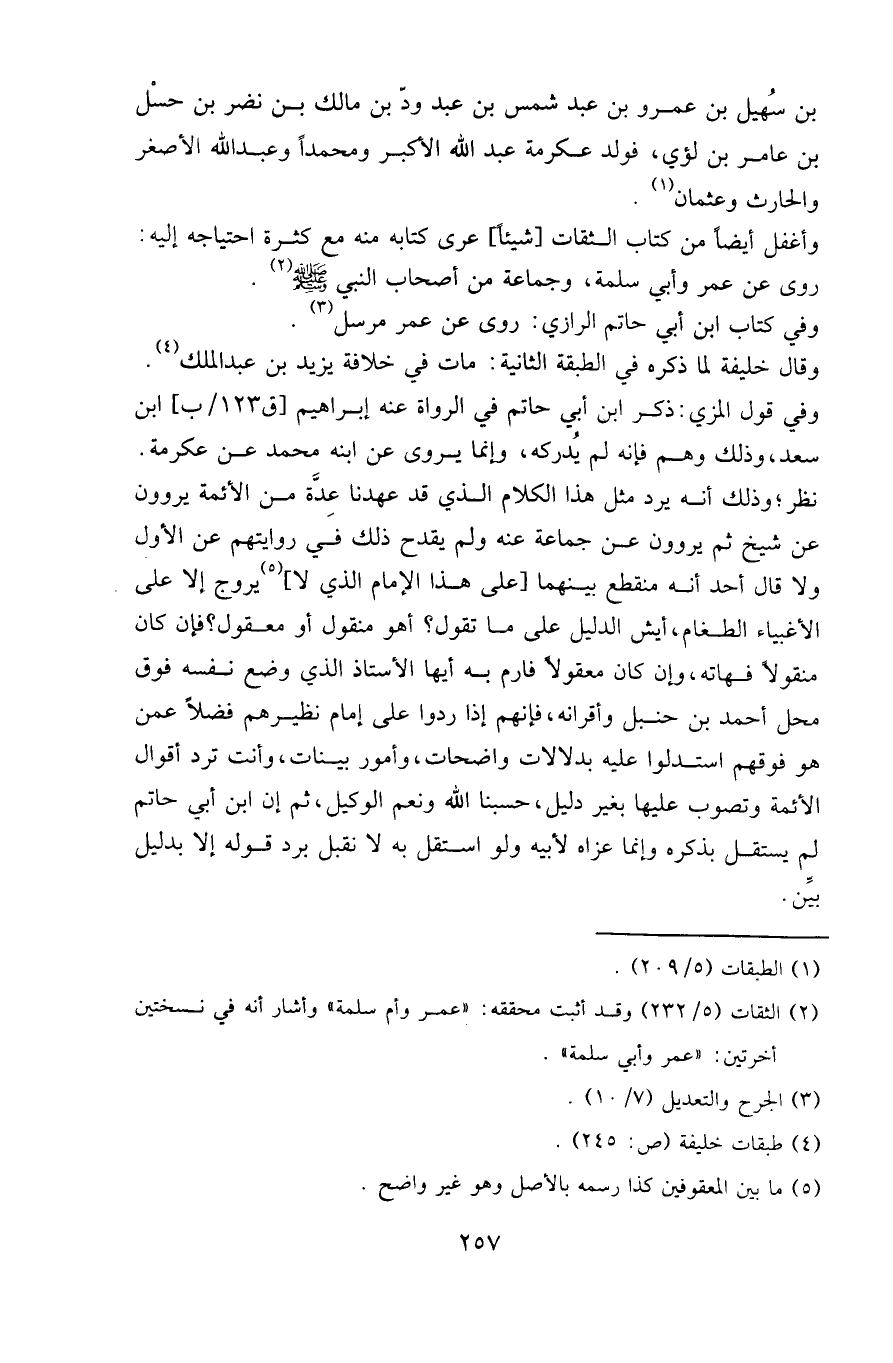 بن سُهيل بن عمرو بن عبد شمس بن عبد ودّ بن مالك بن نضر بن حسْل
بن عامر بن لؤي، فولد عكرمة عبد الله الأكبر ومحمداً وعبدالله الأصغر
والحارث وعثمان(١) .
وأغفل أيضاً من كتاب الثقات [شيئاً] عرى كتابه منه مع كثرة احتياجه إليه:
روى عن عمر وأبي سلمة، وجماعة من أصحاب النبي ﷺ(٢) .
وفي كتاب ابن أبي حاتم الرازي: روى عن عمر مرسل(٣) .
وقال خليفة لما ذكره في الطبقة الثانية: مات في خلافة يزيد بن عبدالملك(٤) .
وفي قول المزي: ذكر ابن أبي حاتم في الرواة عنه إبراهيم [ق١٢٣/ب] ابن
سعد، وذلك وهم فإنه لم يُدركه، وإنما يروى عن ابنه محمد عن عكرمة.
نظر؛ وذلك أنه يرد مثل هذا الكلام الذي قد عهدنا عِدَّة من الأئمة يروون
عن شيخ ثم يروون عن جماعة عنه ولم يقدح ذلك في روايتهم عن الأول
ولا قال أحد أنه منقطع بينهما [على هذا الإمام الذي لا](٥) يروج إلا على
الأغبياء الطغام، أيش الدليل على ما تقول؟ أهو منقول أو معقول؟ فإن كان
منقولاً فهاته، وإن كان معقولاً فارم به أيها الأستاذ الذي وضع نفسه فوق
محل أحمد بن حنبل وأقرانه، فإنهم إذا ردوا على إمام نظيرهم فضلاً عمن
هو فوقهم استدلوا عليه بدلالات واضحات، وأمور بينات، وأنت ترد أقوال
الأئمة وتصوب عليها بغير دليل، حسبنا الله ونعم الوكيل، ثم إن ابن أبي حاتم
لم يستقل بذكره وإنما عزاه لأبيه ولو استقل به لا نقبل برد قوله إلا بدليل
بيِّن.
(١) الطبقات (٥/ ٢٠٩) .
(٢) الثقات (٥/ ٢٣٢) وقد أثبت محققه: «عمر وأم سلمة» وأشار أنه في نسختين
أخرتين: «عمر وأبي سلمة» .
(٣) الجرح والتعديل (٧/ ١٠) .
(٤) طبقات خليفة (ص: ٢٤٥) .
(٥) ما بين المعقوفين كذا رسمه بالأصل وهو غير واضح .
٢٥٧